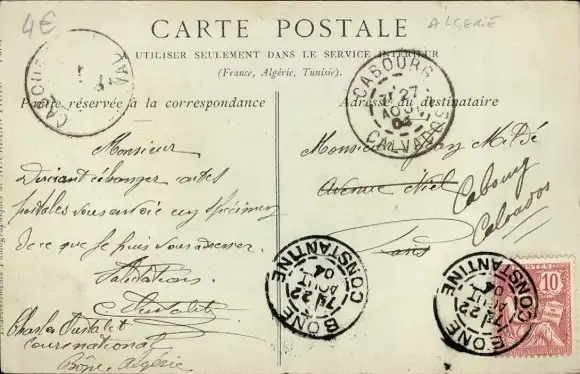 4€
ALGERIE
CARTE POSTALE
UTILISER SEULEMENT DANS LE SERVICE INTÉRIEUR
(France, Algérie, Tunisie).
Partie réservée à la correspondance
Adresse du destinataire
CABOURG
27
AOUT
04
CALVADOS
CALVADOS
Monsieur
Désirant échanger cartes
postales vous envoie un spécimen
de ce que je puis vous adresser.
Salutations.
Charles
Cours national
Bône Algérie
Monsieur
Avenue Niel
Paris
Cabourg
Calvados
BONE
7E 22
AOUT
04
CONSTANTINE
BONE
7E 22
AOUT
04
CONSTANTINE
10